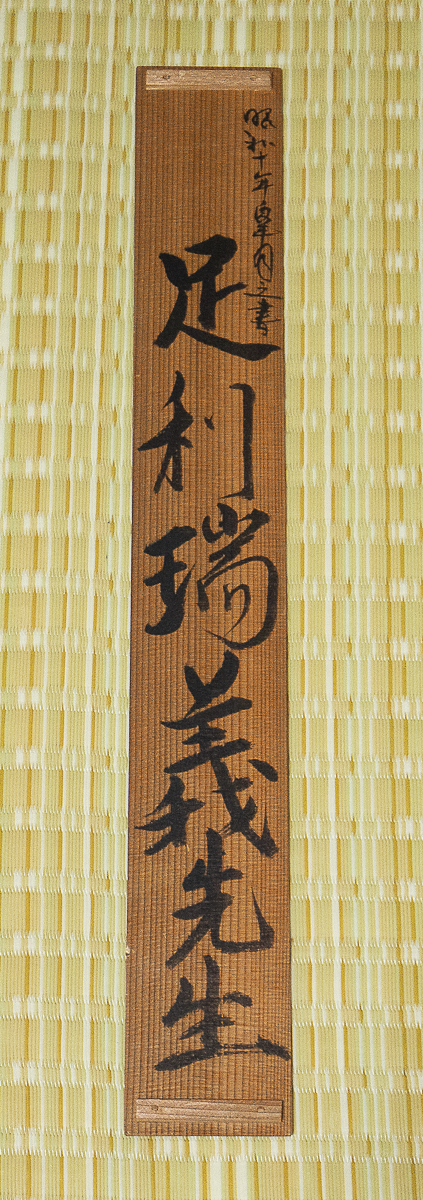 昭和十年皐月之書
足利瑞義先生